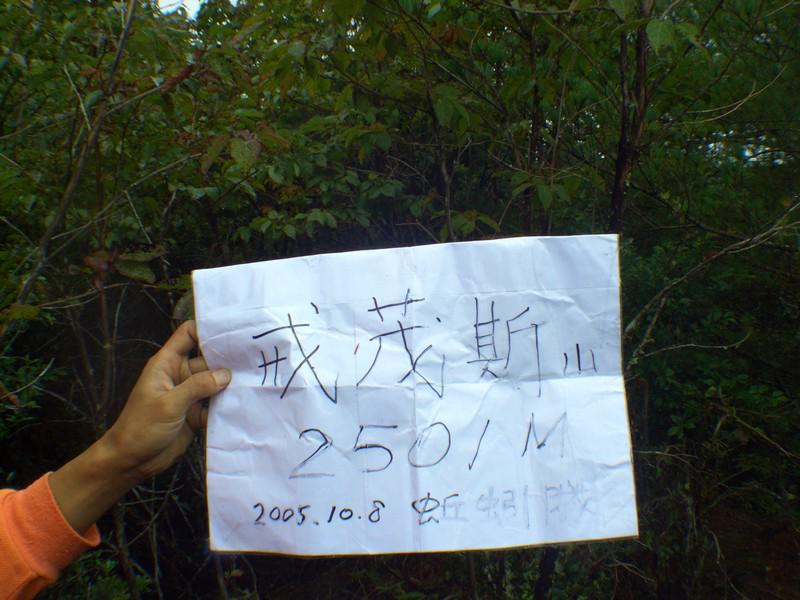 戒茂斯山
2501M
2005.10.8 蚯蚓隊